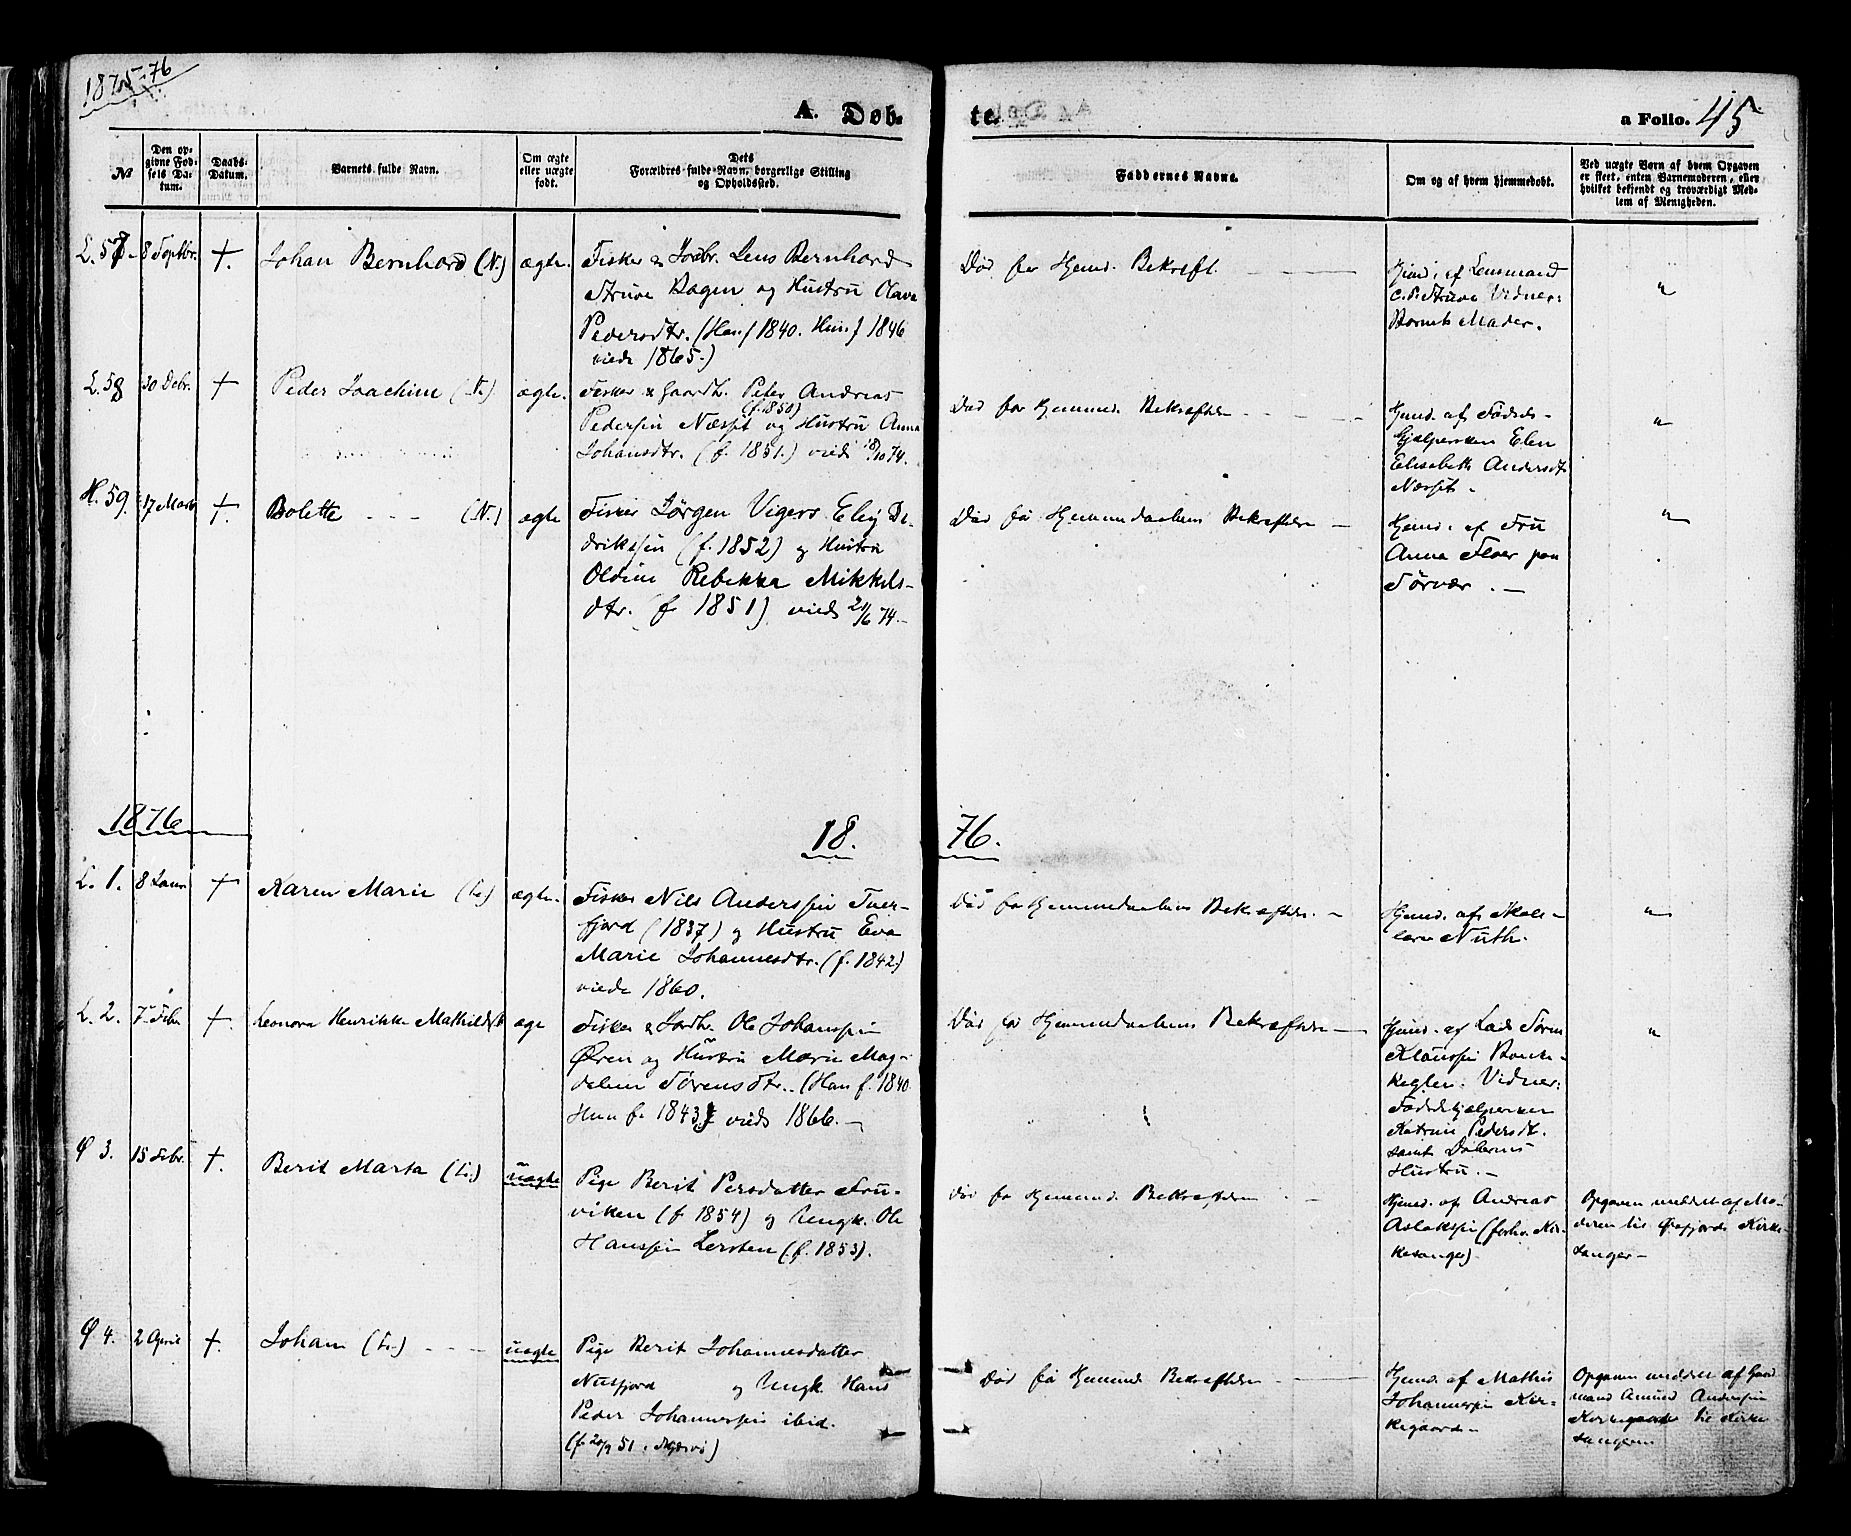 1875-76
A. Døb-
te.
a Folio. 45
No
Den op-
givne Fød-
sels Da-
tum.
Daabs-
Datum.
Barnets fulde Navn.
Om ægte
eller uægte
født.
Dets
Forældres fulde Navn, borgerlige Stilling
og Opholdssted.
Faddernes Navne.
Om og af hvem hjemmedøbt.
Ved uægte Børn af hvem Opgaven
er skeet, enten Barnemoderen, eller
hvilket bekjendt og troværdigt Med-
lem af Menigheden.
L. 57. 8 Septbr. †. Johan Bernhard (N.) ægte.
Fisker & Jordbr. Lens Bernhard
Struve Bagen og Hustru Olava
Pedersdtr. (Han f 1840. Hun f 1846
viede 1865.)
Død før Hjemd. Bekræft.
Hjmd. af Lensmand
C. P. Struve Vidner:
Barnets Moder.
"
L. 58 30 Debr. † Peder Joachim (N.) ægte.
Fisker & Gaardb. Peter Andreas
(f. 1850)
Pedersen Næsset og Hustru Anna
Johansdtr. (f. 1851.) viede 18/10 74.
Død før Hjemmed. Bekræftelse
Hjmd. af Fødsels-
hjælpersken Elen
Elisabeth Andersdt.
Næsset.
"
H. 59. 17 Marts †. Bolette - - - (N.) ægte
Fisker Jørgen Vigers Eliy Di-
driksen (f. 1852) og Hustru
Oldine Rebekka Mikkels-
dtr. (f 1851) viede 21/6 74.-
Død før Hjemmedaabens Bekræftelse -
Hjemd. af Fru
Anna Floer paa
Sørvær. -
"
1876
18. 76.
L. 1. 8 Janr † Karen Marie (L.) ægte.
Fisker Nils Anderssen Tver-
fjord (1837) og Hustru Eva
Marie Johannesdtr. (f. 1842.)
viede 1860.
Død før Hjemmedaabens Bekræftelse. -
Hjmd. af Skole-
lærer Nuth.
"
L. 2. 7 Febr †. Leonora Henrikke Mathilde ægte
Fisker & Jordb. Ole Johanssen
Øren og Hustru Marie Mag-
dalena Sørensdtr. (Han f. 1840.
Hun f. 1843) viede 1866. -
Død før Hjemmedaabens Bekræftelse -
Hjmd. af Lads Søren
Klaussen Bankе-
keglen. Vidner:
Fødselshjælpersken
Katrine Pedersdt.
samt Døberens
Hustru. -
"
Ø 3. 15 Febr. †. Berit Marta (L.) uægte
Pige Berit Persdatter Fru-
viken (f 1854) og Ungk. Ole
Hanssen Lersten (f. 1853).
Død før Hjemmd. Bekræftelse
Hjmd. af Andreas
Aslaksen (forhv. Kir-
kesanger).
Opgaven meddelt af Mo-
deren til Øxfjords Kirke-
sanger-
Ø 4. 2 April †. Johan (L.) - - - uægte
Pige Berit Johannesdatter
Nusfjord og Ungk. Hans
Peder Johannessen ibid.
(f. 20/9 51. Skjærvø)
Død før Hjemmd. Bekræftelse
Hjmd. af Mathis
Johannessen Kir-
kegaard-
Opgaven meddelt af Gaard
mand Amund Anderssen
Kirkegaard til Kirke
sangeren